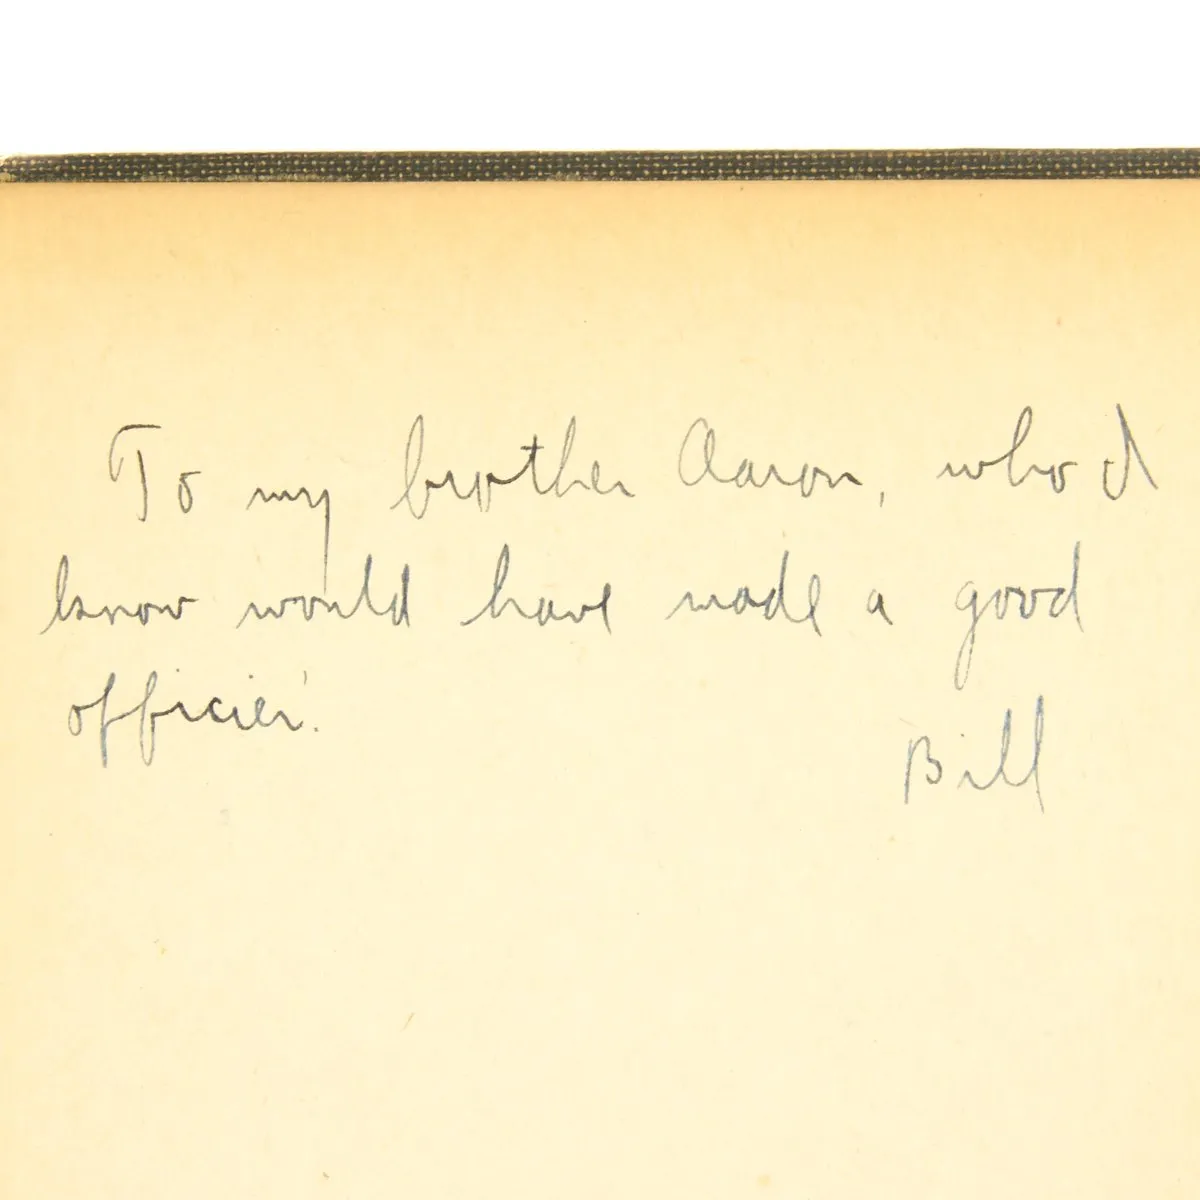 To my brother Aaron, who I
know would have made a good
officier.
Bill